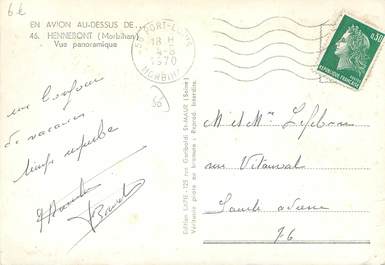 6€
EN AVION AU-DESSUS DE...
46. HENNEBONT (Morbihan)
Vue panoramique
56 PORT-LOUIS
18 H
1970
MORBIHAN
0,30
REPUBLIQUE FRANÇAISE
56
un bonjour
de vacances
temps superbe
Edition LAPIE - 125 rue Garibaldi St-MAUR (Seine)
Véritable photo au bromure - Reprod. Interdite.
M et Mme Lefebvre
rue Vitanval
Sainte adresse
76